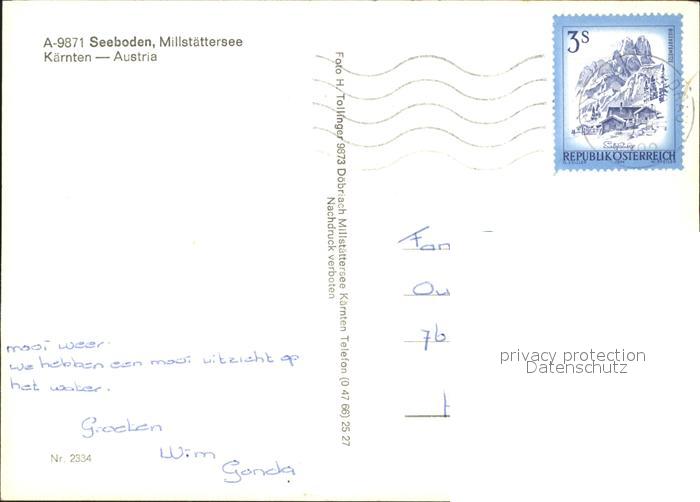 A-9871 Seeboden, Millstättersee
Kärnten — Austria
3S
REPUBLIK ÖSTERREICH
Foto H. Tollinger 9873 Döbriach Millstättersee Kärnten Telefon (0 47 66) 25 27
Nachdruck verboten
Fam
Ou
7b
privacy protection
Datenschutz
mooi weer.
we hebben een mooi uitzicht op
het water.
Groeten
Wim
Gonda
Nr. 2334